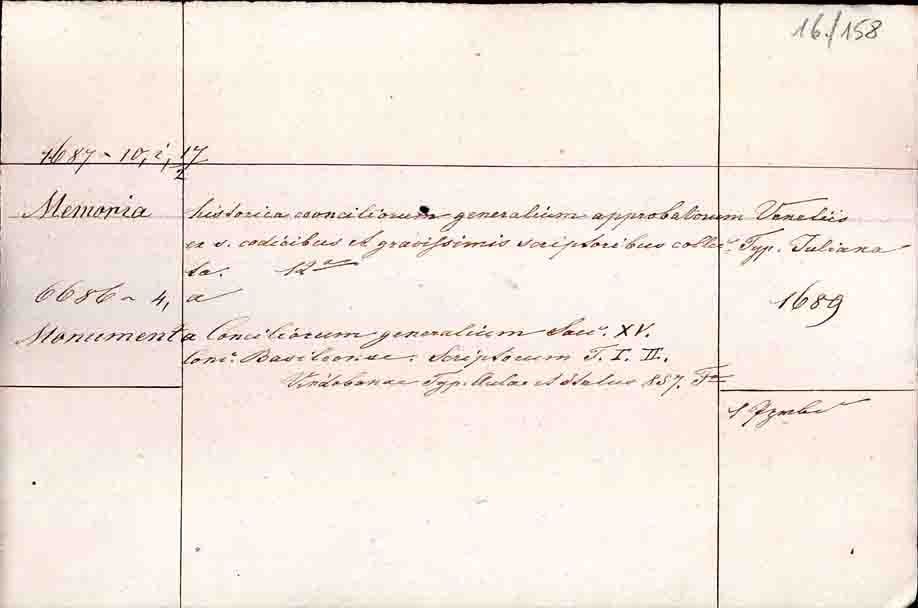 16./158
1687 - 10, i, 17/2
Memoria historica conciliorum generalium approbatorum Venetiis
ex s. codicibus et gravissimis scriptoribus collec- Typ. Juliana
ta. 12º
6686 - 4, a 1689
Monumenta Conciliorum generalium Saec. XV.
Conc. Basileense. Scriptorum T. I. II.
Vindobonae Typ. Aulae et Status 857. Fº